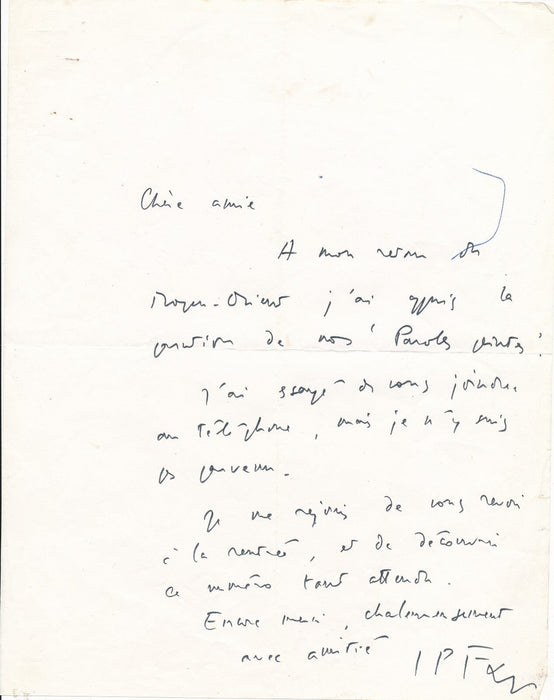 Chère amie
A mon retour du
Moyen-Orient j'ai appris la
parution de nos "Paroles peintes".
J'ai essayé de vous joindre
au téléphone, mais je n'y suis
pas parvenu.
Je me réjouis de vous revoir
à la rentrée, et de découvrir
ce numéro tant attendu.
Encore merci, chaleureusement
avec amitié